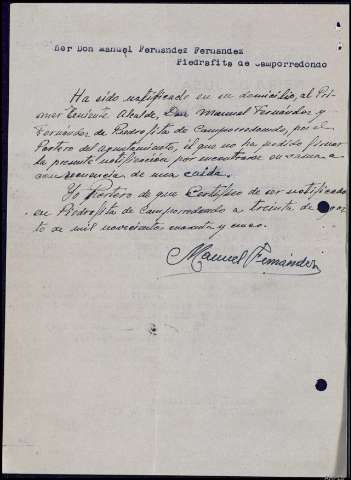 ñor Don Manuel Fernandez Fernandez
Piedrafita de Camporredondo
Ha sido notificado en su domicilio, al Pri-
mer Teniente Alcalde, Don Manuel Fernández y
Fernández de Piedrafita de Camporredondo, por el
Portero del ayuntamiento, el que no ha podido firmar
la presente notificación por encontrarse en cama a
consecuencia de una caida.
Yo Portero de que Certifico de ser notificado
en Piedrafita de Camporredondo a treinta de
to de mil novecientos cuarenta y cinco.
Manuel Fernández